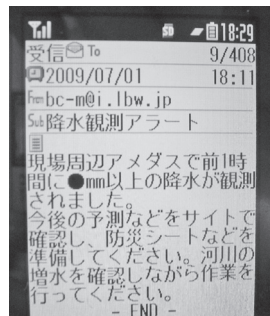 18:29
受信 To 9/408
2009/07/01 18:11
From bc-m@i.lbw.jp
Sub 降水観測アラート
現場周辺アメダスで前1時
間に●mm以上の降水が観測
されました。
今後の予測などをサイトで
確認し、防災シートなどを
準備してください。河川の
増水を確認しながら作業を
行ってください。
- END -